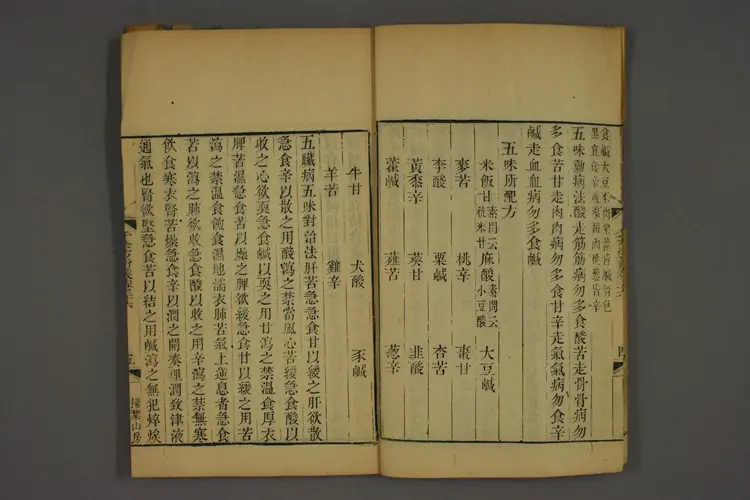 食鹹大豆豕肉栗藿皆鹹腎色
黑宜食辛黃黍雞肉桃葱皆辛
五味動病法酸走筋筋病勿多食酸苦走骨骨病勿
多食苦甘走肉肉病勿多食甘辛走氣氣病勿多食辛
鹹走血血病勿多食鹹
五味所配方
米飯甘素問云粳米甘 麻酸素問云小豆酸 大豆鹹
麥苦 黃黍辛
李酸 桃辛 棗甘
栗鹹 杏苦
藿鹹 薤苦 葵甘 韭酸 葱辛
牛甘 犬酸 豕鹹
羊苦 雞辛
五臟病五味對治法肝苦急急食甘以緩之肝欲散
急食辛以散之用酸瀉之禁當風心苦緩急食酸以
收之心欲耎急食鹹以耎之用甘瀉之禁溫食厚衣
脾苦濕急食苦以燥之脾欲緩急食甘以緩之用苦
瀉之禁溫食飽食濕地濡衣肺苦氣上逆息者急食
苦以瀉之肺欲收急食酸以收之用辛瀉之禁無寒
飲食寒衣腎苦燥急食辛以潤之開腠理潤致津液
通氣也腎欲堅急食苦以結之用鹹瀉之無犯焠㷄
五
掃葉山房